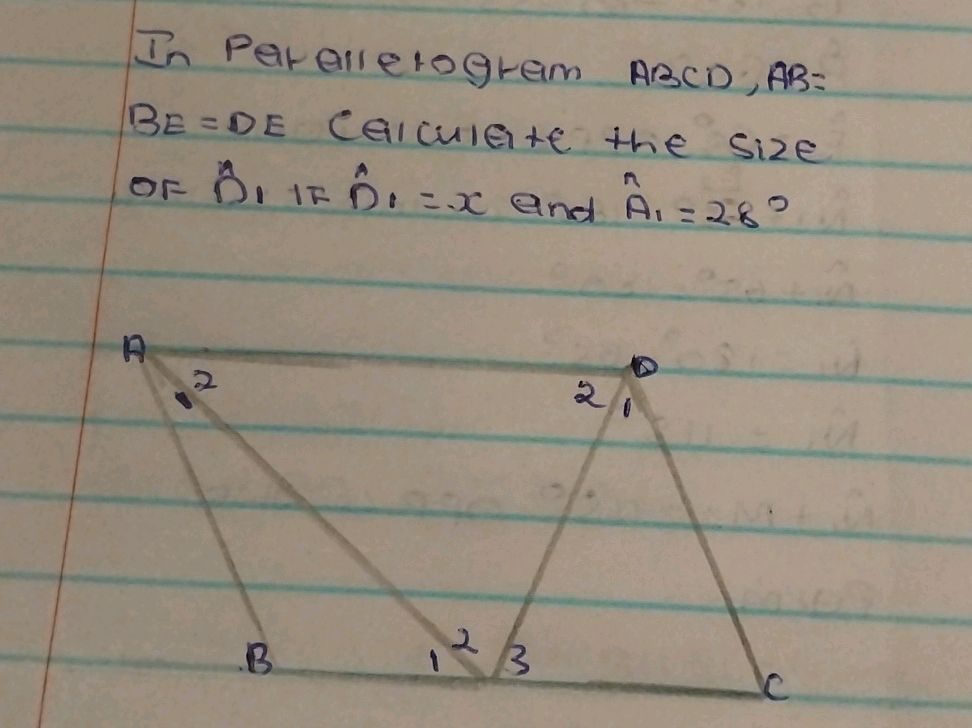 In Parallelogram ABCD, AB=
BE = DE Calculate the size
OF D̂₁ IF D̂₁ = x and Â₁ = 28°
A
2
D
2
1
B
1
2
3
C